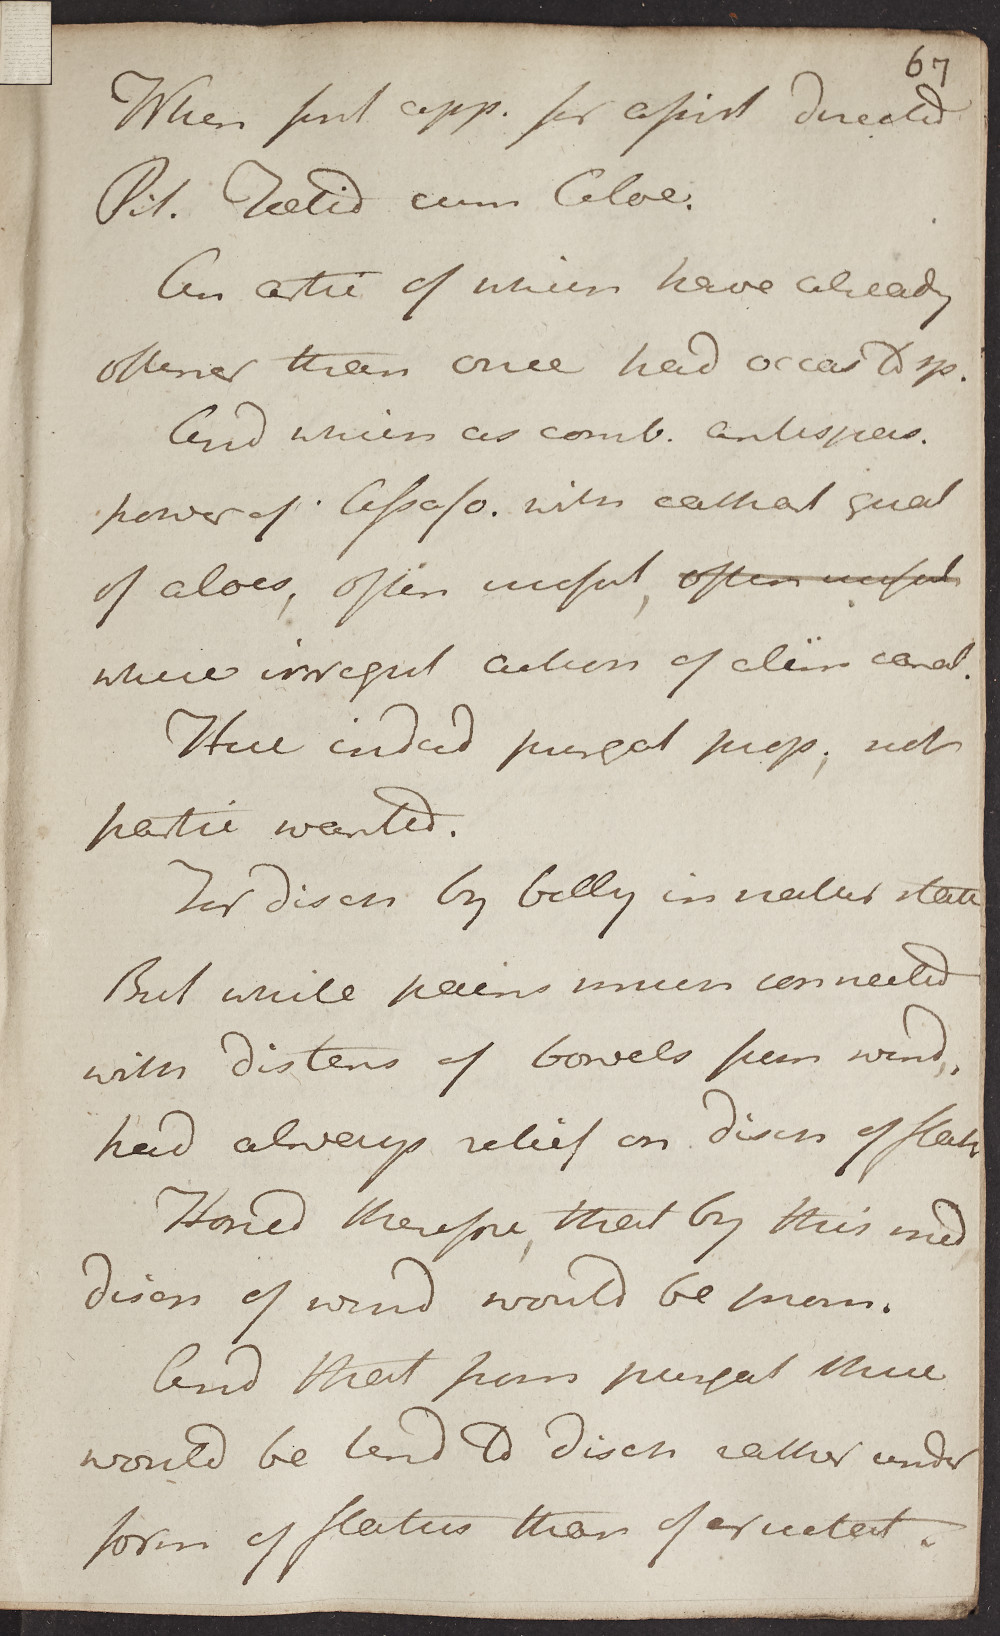 67
When first app. for assist directed
Pil. Foetid cum Aloe.
An artic of which have already
oftener than once had occas to sp.
And which as comb. antispas.
power of Assafo. with cathart qual
of aloes, often useful, often useful
where irregul action of alim canal.
Here indeed purgat prop, not
partic wanted.
For disch by belly in natur state
But while pains much connected
with distens of bowels from wind,
had always relief on disch of flatu
Hoped therefore, that by this med
disch of wind would be prom.
And that from purgat there
would be tend to disch rather under
form of flatus than of eructat.